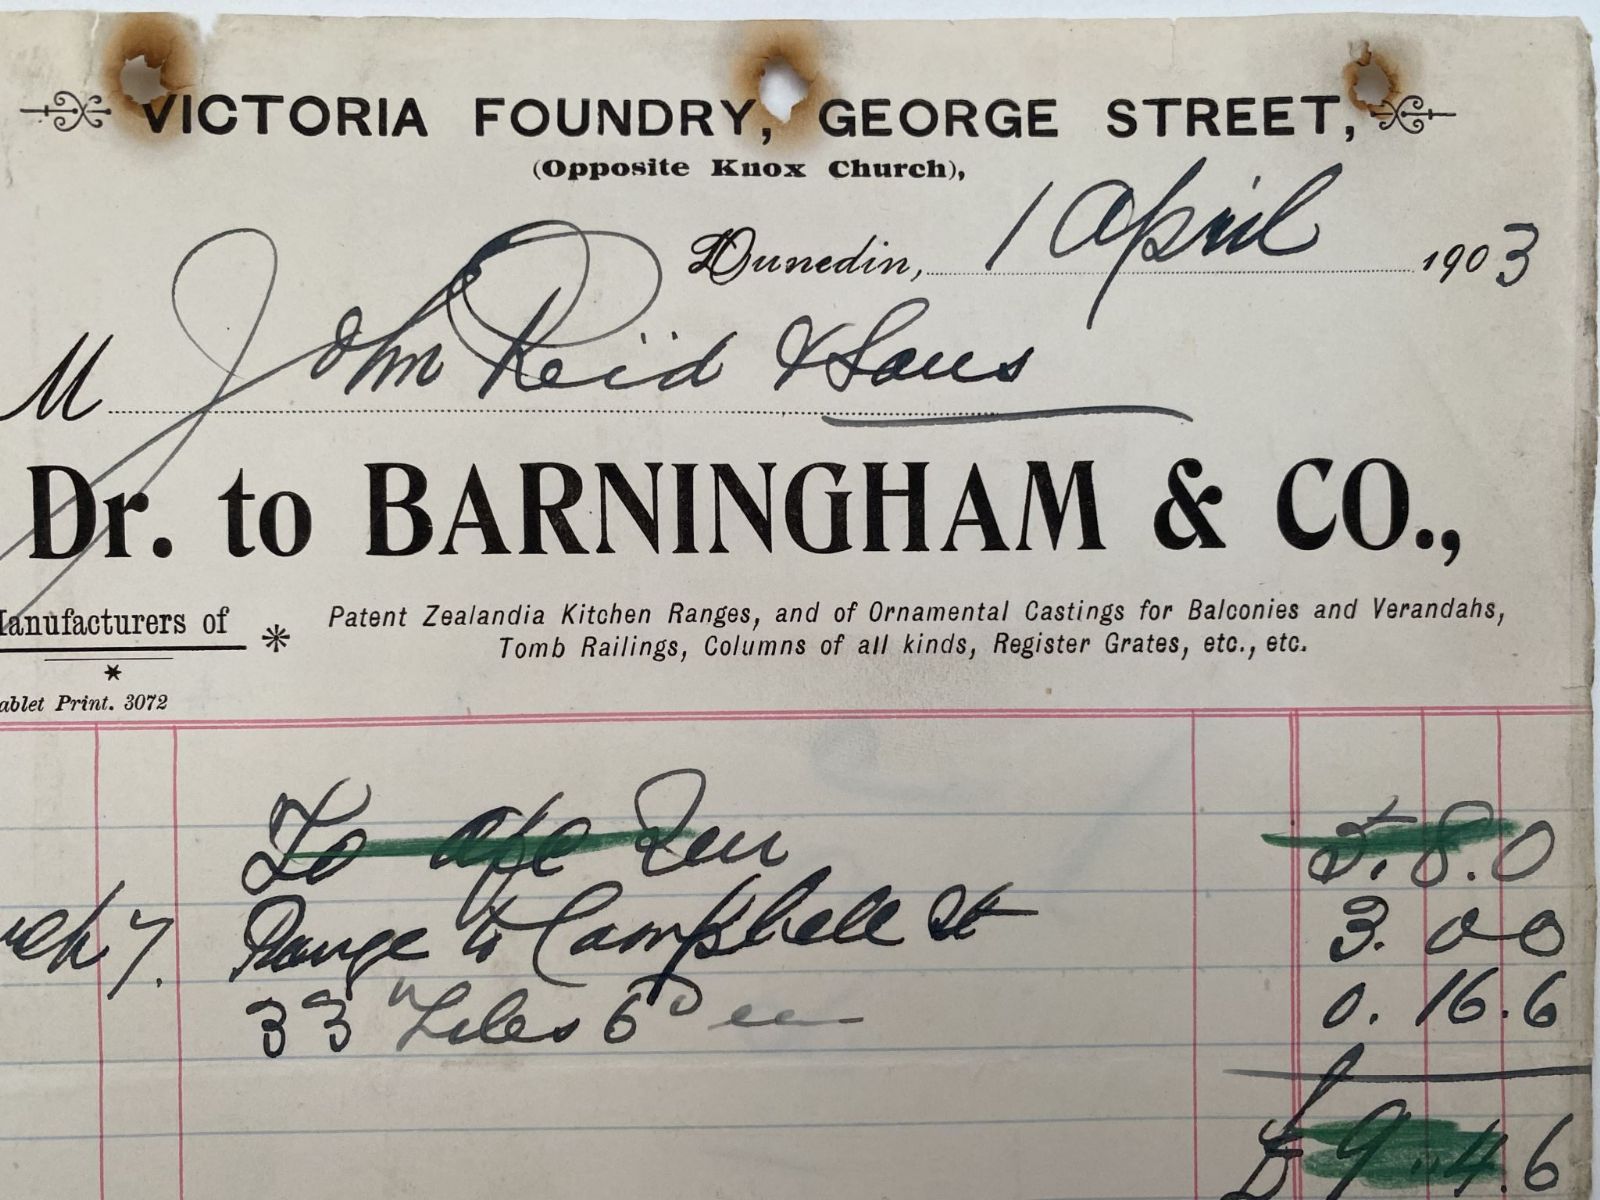 VICTORIA FOUNDRY, GEORGE STREET,
(Opposite Knox Church),
Dunedin, 1 April 1903
M John Reid & Sons
Dr. to BARNINGHAM & CO.,
Manufacturers of * Patent Zealandia Kitchen Ranges, and of Ornamental Castings for Balconies and Verandahs,
Tomb Railings, Columns of all kinds, Register Grates, etc., etc.
*
ablet Print. 3072
To a/c Ren 5. 8. 0
rch 7. Range to Campbell St 3. 0 0
33 Tiles 6D ea 0. 16. 6
£ 9 " 4. 6